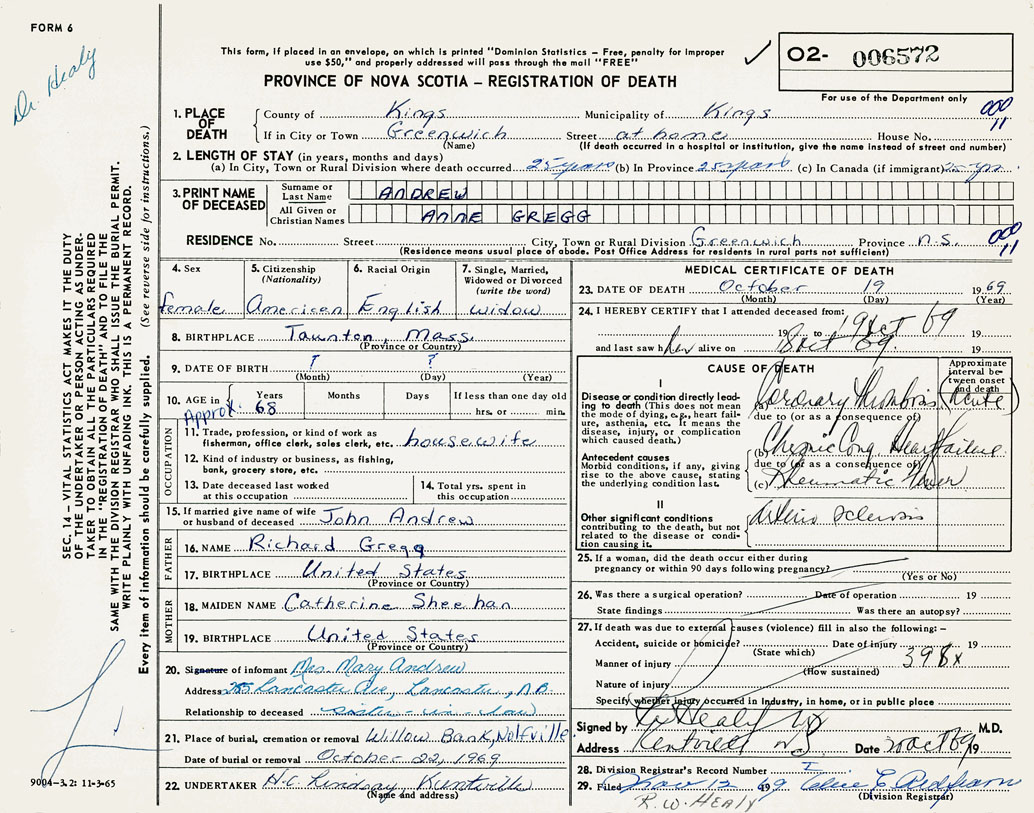 FORM 6
Dr. Healy
This form, if placed in an envelope, on which is printed "Dominion Statistics – Free, penalty for improper
use $50," and properly addressed will pass through the mail "FREE"
PROVINCE OF NOVA SCOTIA – REGISTRATION OF DEATH
✓
O2- 006572
For use of the Department only
1. PLACE OF DEATH
County of Kings Municipality of Kings 000
If in City or Town Greenwich Street at home House No. 11
(Name) (If death occurred in a hospital or institution, give the name instead of street and number)
2. LENGTH OF STAY (in years, months and days)
(a) In City, Town or Rural Division where death occurred 25 years (b) In Province 25 years (c) In Canada (if immigrant) 25 yrs.
3. PRINT NAME OF DECEASED
Surname or Last Name ANDREW
All Given or Christian Names ANNE GREGG
RESIDENCE No. Street City, Town or Rural Division Greenwich Province N.S. 000
(Residence means usual place of abode. Post Office Address for residents in rural parts not sufficient) 11
4. Sex
female
5. Citizenship
(Nationality)
American
6. Racial Origin
English
7. Single, Married,
Widowed or Divorced
(write the word)
widow
8. BIRTHPLACE Taunton, Mass.
(Province or Country)
9. DATE OF BIRTH ? ?
(Month) (Day) (Year)
10. AGE in Years Months Days If less than one day old
Approx. 68 hrs. or min.
OCCUPATION
11. Trade, profession, or kind of work as
fisherman, office clerk, sales clerk, etc. housewife
12. Kind of industry or business, as fishing,
bank, grocery store, etc.
13. Date deceased last worked
at this occupation
14. Total yrs. spent in
this occupation
15. If married give name of wife
or husband of deceased John Andrew
FATHER
16. NAME Richard Gregg
17. BIRTHPLACE United States
(Province or Country)
MOTHER
18. MAIDEN NAME Catherine Sheehan
19. BIRTHPLACE United States
(Province or Country)
20. Signature of informant Mrs. Mary Andrew
Address Lancaster Ave, Lancaster, N.B.
Relationship to deceased sister-in-law
21. Place of burial, cremation or removal Willow Bank, Wolfville
Date of burial or removal October 22, 1969
22. UNDERTAKER H.C. Lindsay Kentville
(Name and address)
MEDICAL CERTIFICATE OF DEATH
23. DATE OF DEATH October 19 1969
(Month) (Day) (Year)
24. I HEREBY CERTIFY that I attended deceased from:
19 to 19 Oct 69 19
and last saw her alive on 18 Oct 69 19
CAUSE OF DEATH
Approximate
interval be-
tween onset
and death
I
Disease or condition directly lead-
ing to death (This does not mean
the mode of dying, e.g., heart fail-
ure, asthenia, etc. It means the
disease, injury, or complication
which caused death.)
(a) Coronary Thrombosis (Acute)
due to (or as a consequence of)
Antecedent causes
Morbid conditions, if any, giving
rise to the above cause, stating
the underlying condition last.
(b) Chronic Cong. Heart Failure
due to (or as a consequence of)
(c) Rheumatic Fever
II
Other significant conditions
contributing to the death, but not
related to the disease or condi-
tion causing it.
Arterio Sclerosis
25. If a woman, did the death occur either during
pregnancy or within 90 days following pregnancy?
(Yes or No)
26. Was there a surgical operation? Date of operation 19
State findings Was there an autopsy?
27. If death was due to external causes (violence) fill in also the following: –
Accident, suicide or homicide? Date of injury 19
(State which) 398x
Manner of injury
(How sustained)
Nature of injury
Specify whether injury occurred in Industry, in home, or in public place
Signed by Healy M.D.
Address Kentville N.S. Date 20 Oct 69 19
28. Division Registrar's Record Number I
29. Filed Nov 12 69
(Division Registrar)
R.W. HEALY
SEC. 14 – VITAL STATISTICS ACT MAKES IT THE DUTY
OF THE UNDERTAKER OR PERSON ACTING AS UNDER-
TAKER TO OBTAIN ALL THE PARTICULARS REQUIRED
IN THE "REGISTRATION OF DEATH" AND TO FILE THE
SAME WITH THE DIVISION REGISTRAR WHO SHALL ISSUE THE BURIAL PERMIT.
WRITE PLAINLY WITH UNFADING INK. THIS IS A PERMANENT RECORD.
Every item of information should be carefully supplied. (See reverse side for instructions.)
9004–3.2: 11-3-65